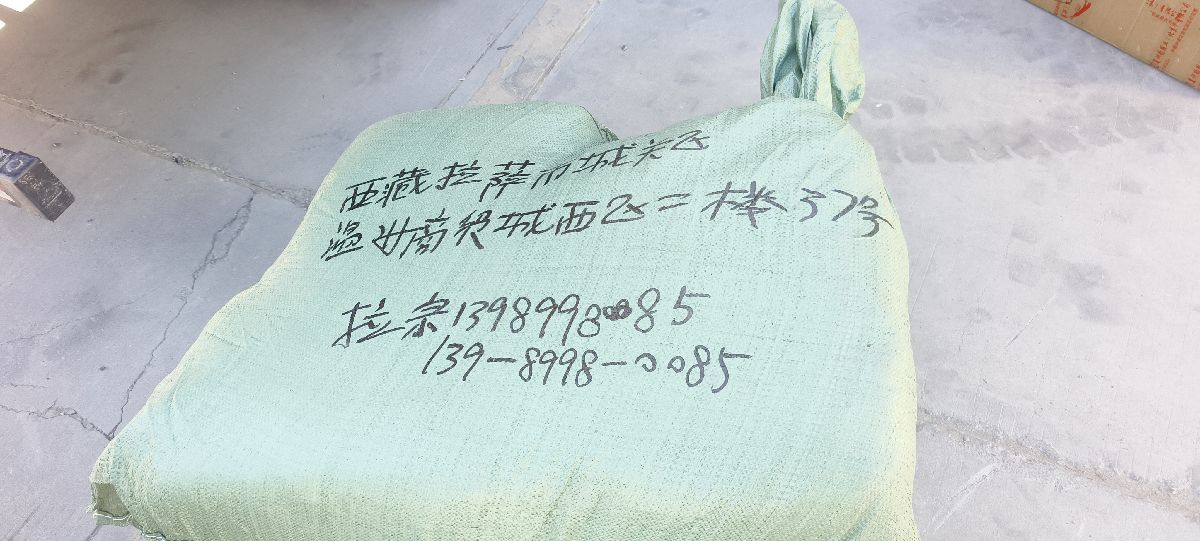 西藏拉萨市城关区
温州商贸城西区二楼37号
拉宗13989980085
139-8998-0085